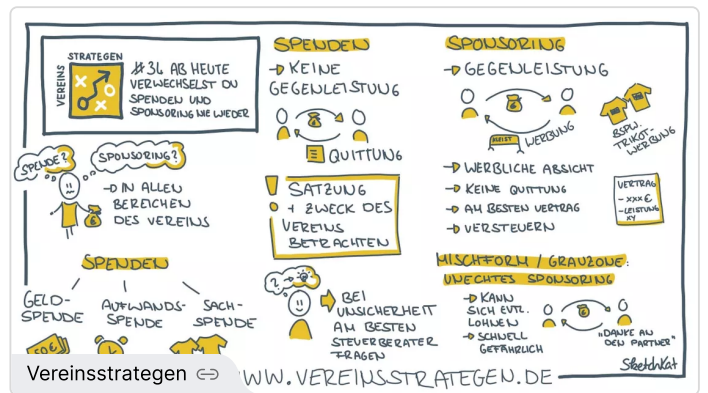 VEREINS
STRATEGEN
#36 AB HEUTE
VERWECHSELST DU
SPENDEN UND
SPONSORING NIE WIEDER
SPENDE?
SPONSORING?
→ IN ALLEN
BEREICHEN
DES VEREINS
SPENDEN
GELD-
SPENDE
AUFWANDS-
SPENDE
SACH-
SPENDE
50€
SPENDEN
→ KEINE
GEGENLEISTUNG
QUITTUNG
! SATZUNG
+ ZWECK DES
VEREINS
BETRACHTEN
? → 
BEI
UNSICHERHEIT
AM BESTEN
STEUERBERATER
FRAGEN
SPONSORING
→ GEGENLEISTUNG
WERBUNG
BSPW.
TRIKOT-
WERBUNG
→ WERBLICHE ABSICHT
→ KEINE QUITTUNG
→ AM BESTEN VERTRAG
→ VERSTEUERN
VERTRAG
- XXX €
- LEISTUNG
XY
MISCHFORM / GRAUZONE:
UNECHTES SPONSORING
→ KANN
SICH EVTL.
LOHNEN
→ SCHNELL
GEFÄHRLICH
"DANKE AN
DEN PARTNER"
SketchKat
Vereinsstrategen
WWW.VEREINSSTRATEGEN.DE